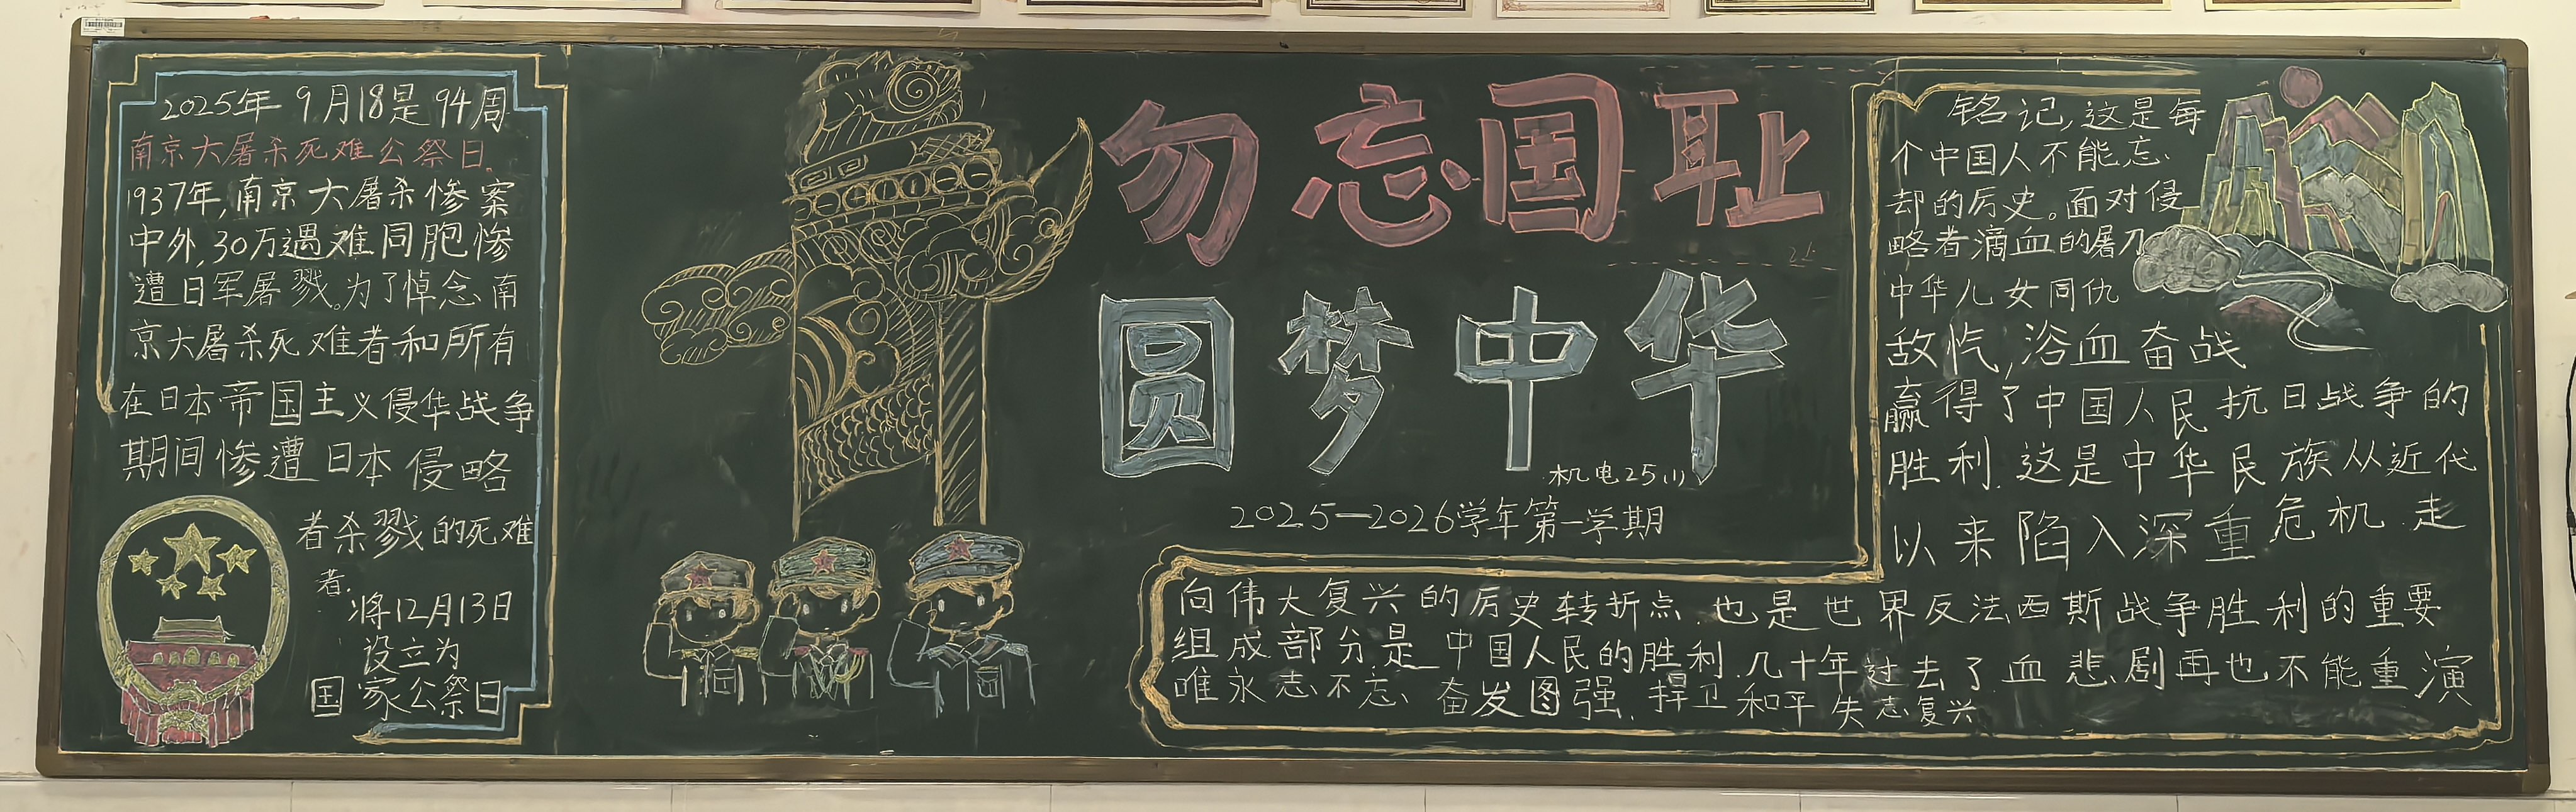 2025年 9月18是94周
南京大屠杀死难公祭日。
1937年,南京大屠杀惨案
中外,30万遇难同胞惨
遭日军屠戮。为了悼念南
京大屠杀死难者和所有
在日本帝国主义侵华战争
期间惨遭日本侵略
者杀戮的死难
者.
将12月13日
设立为
国家公祭日
勿忘国耻
圆梦中华
机电25(1)
2025—2026学年第一学期
铭记,这是每
个中国人不能忘
却的历史。面对侵
略者滴血的屠刀
中华儿女同仇
敌忾,浴血奋战
赢得了中国人民抗日战争的
胜利.这是中华民族从近代
以来陷入深重危机.走
向伟大复兴的历史转折点.也是世界反法西斯战争胜利的重要
组成部分是 中国人民的胜利.几十年过去了血悲剧再也不能重演
唯永志不忘 奋发图强.捍卫和平 矢志复兴